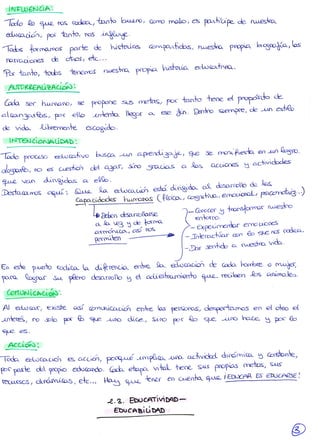 INFLUENCIA:
Todo lo que nos rodea, tanto bueno como malo, es partícipe de nuestra
educación, por tanto, nos influye.
Todos formamos parte de historias compartidas, nuestra propia biografía, las
narraciones de otros, etc...
Por tanto, todos tenemos nuestra propia historia educativa.
AUTORREALIZACIÓN:
Cada ser humano, se propone sus metas, por tanto tiene el propósito de
alcanzarlas, por ello intenta llegar a ese fin. Dentro siempre, de un estilo
de vida libremente escogido.
INTENCIONALIDAD:
Todo proceso educativo busca un aprendizaje, que se manifiesta en un logro.
adoptarlo, no es cuestión del azar, sino gracias a las acciones y actividades
que van dirigidas a ello.
Destacamos aquí: Que la educación está dirigida al desarrollo de las
capacidades humanas (física, cognitiva, emocional, psicomotriz...)
Deben desarrollarse
a la vez y de forma
armónica, así nos
permiten
- Conocer y transformar nuestro
entorno.
- Experimentar emociones
- Interactuar con lo que nos rodea.
- Dar sentido a nuestra vida.
En este punto radica la diferencia, entre la educación de cada hombre o mujer,
para lograr su pleno desarrollo y el adiestramiento que reciben los animales.
COMUNICACIÓN:
Al educar, existe así comunicación entre las personas, despertamos en el otro el
interés, no solo por lo que uno dice, sino por lo que uno hace y por lo
que es.
ACCIÓN:
Toda educación es acción, porque implica una actividad dinámica y constante,
por parte del propio educando. Cada etapa vital tiene sus propias metas, sus
recursos, dinámicas, etc... Hay que tener en cuenta, que ¡EDUCAR ES EDUCARSE!
2.2. EDUCATIVIDAD-
EDUCABILIDAD
3